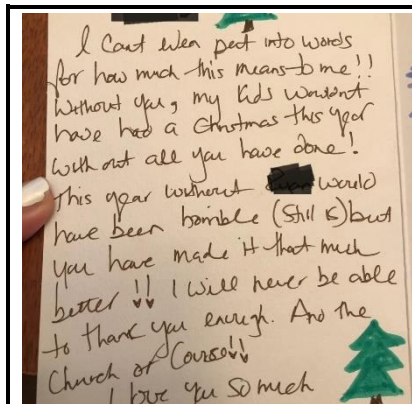 I Cant even put into words
for how much this means to me!!
Without you, my kids wouldnt
have had a Christmas this year
without all you have done!
This year without would
have been horrible (Still is) but
you have made it that much
better !! I will never be able
to thank you enough. And the
Church of Course!!
I love you so much